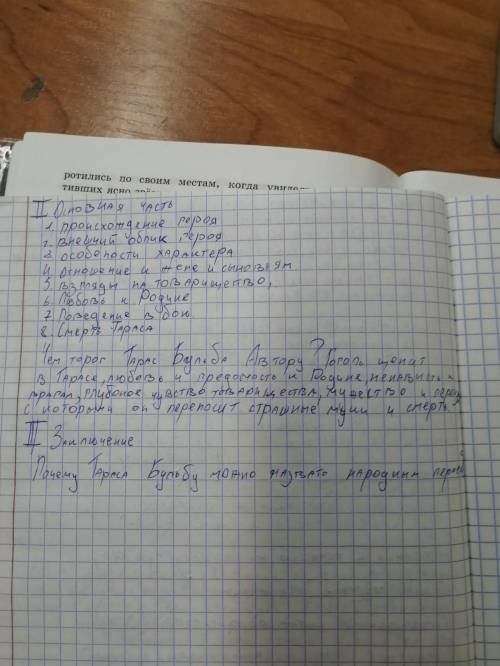 ротились по своим местам, когда
тивших ясно
II Основная часть
1. происхождение героя
2. внешний облик героя
3. особености характера
4. отношение к жене и сыновьям
5. взгляды на товарищество,
6. Любовь к Родине
7. Поведение в бою
8. Смерть Тараса
Чем дорог Тарас Бульба Автору? Гоголь ценит
в Тарасе, любовь и преданость к Родине, ненависть к
врагам, глубокое чувство товарищества, мужество и
с которыми он переносит страшные муки и смерть
III Заключение
Почему Тараса Бульбу можно назвать народным героем